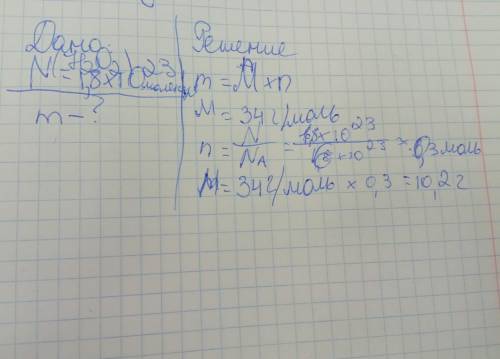 Дано:
N(H₂O₂)
N = 1,8×10²³ молекул
m - ?
Решение
m = M × n
M = 34 г/моль
n = N/Nₐ = 1,8×10²³/6×10²³ = 0,3 моль
M = 34 г/моль × 0,3 = 10,2 г